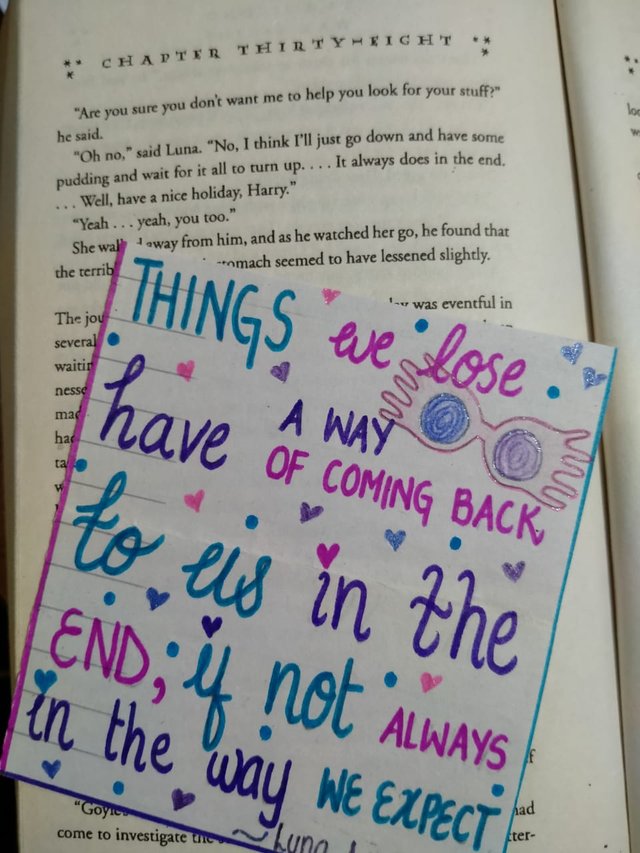 CHAPTER THIRTY-EIGHT
"Are you sure you don't want me to help you look for your stuff?"
he said.
"Oh no," said Luna. "No, I think I'll just go down and have some
pudding and wait for it all to turn up. . . . It always does in the end.
. . . Well, have a nice holiday, Harry."
"Yeah . . . yeah, you too."
She away from him, and as he watched her go, he found that
the stomach seemed to have lessened slightly.
was eventful in
The
several
THINGS we lose
have A WAY
OF COMING BACK
to us in the
END, if not ALWAYS
in the way WE EXPECT
~Luna
come to investigate